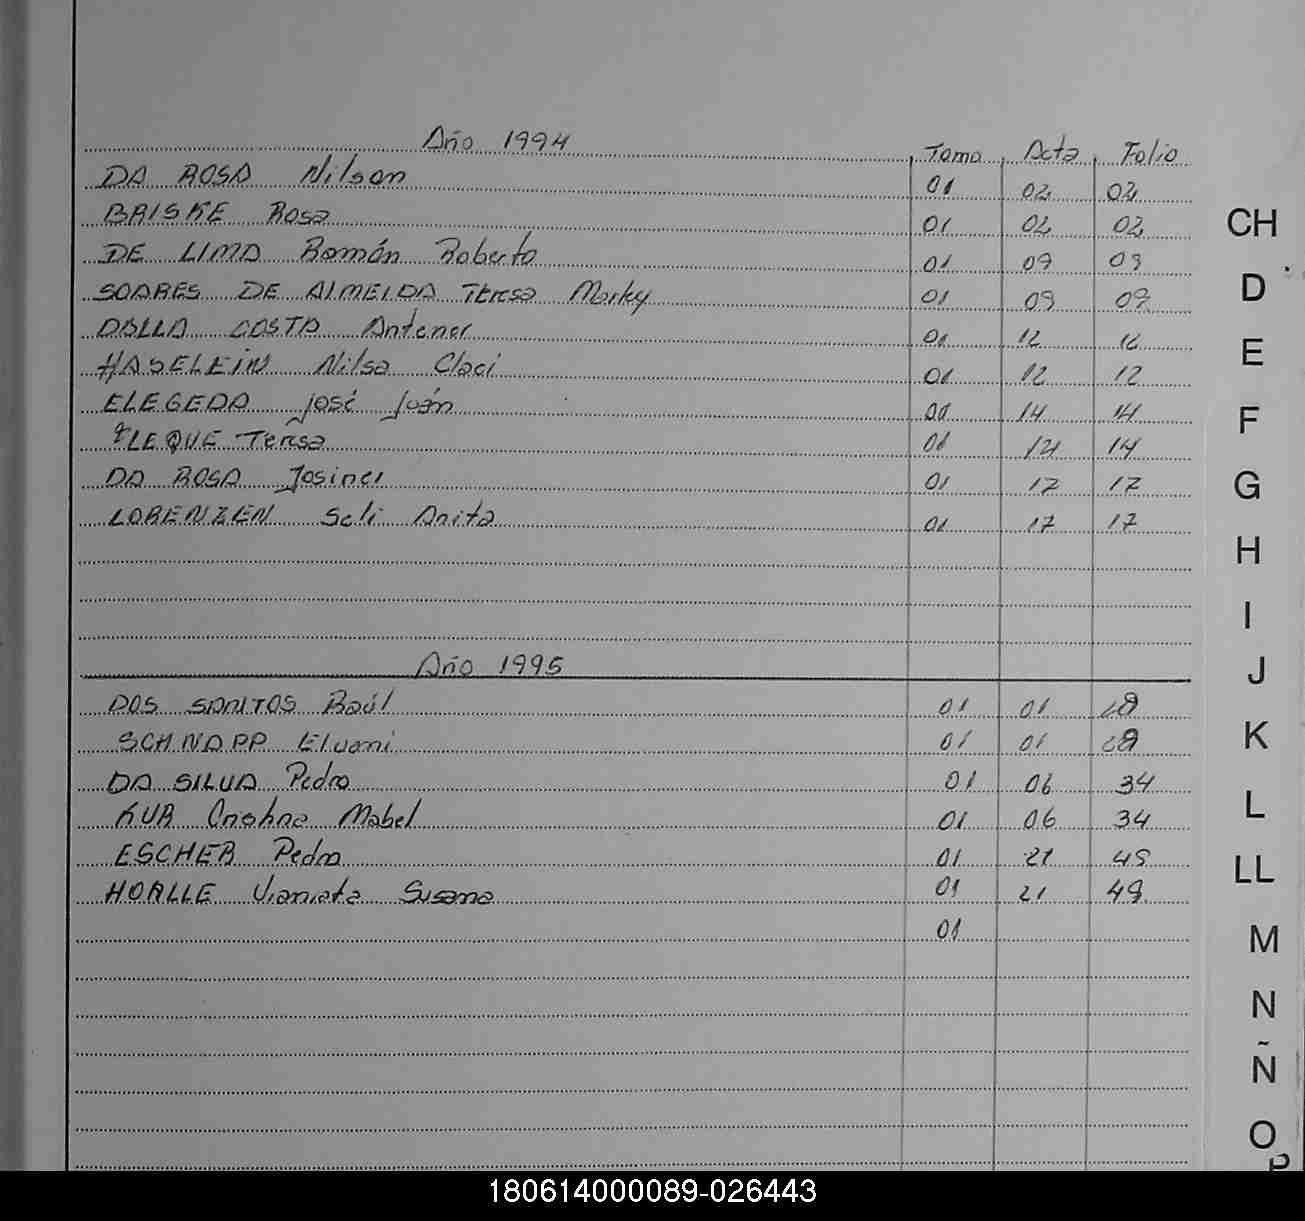 Año 1994
Tomo Acta Folio
DA ROSA Nilson 01 02 02
BRISKE Rosa 01 02 02
DE LIMA Román Roberto 01 09 09
SOARES DE ALMEIDA Teresa Marky 01 09 09
DALLA COSTA Antenor 01 12 12
HASELEIN Nilsa Claci 01 12 12
ELEGEDA José Juán 01 14 14
FLEQUE Teresa 01 14 14
DA ROSA Josinei 01 17 17
LORENZEN Seli Anita 01 17 17
Año 1995
DOS SANTOS Raúl 01 01 28
SCHNAPP Elvani 01 01 28
DA SILVA Pedro 01 06 34
KUR Cristina Mabel 01 06 34
ESCHER Pedro 01 21 49
HORLLE Susana 01 21 49
01
CH
D
E
F
G
H
I
J
K
L
LL
M
N
Ñ
O
P
180614000089-026443